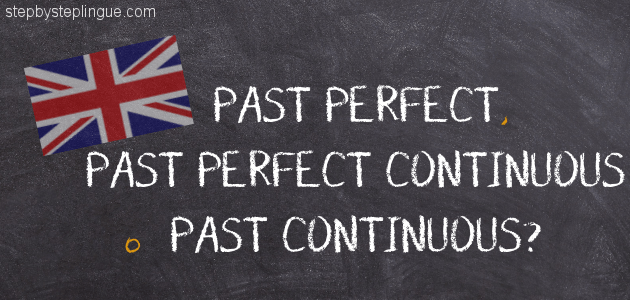 stepbysteplingue.com
PAST PERFECT,
PAST PERFECT CONTINUOUS
o PAST CONTINUOUS?